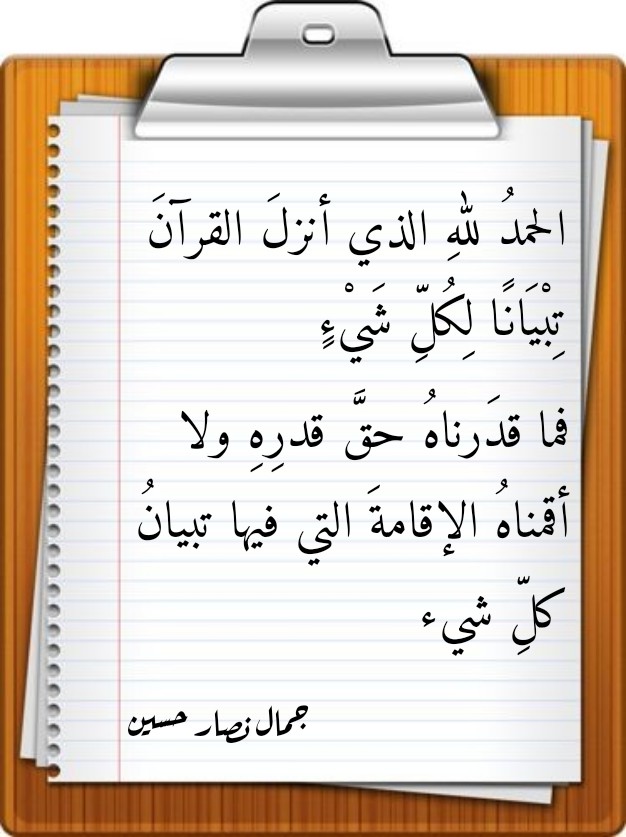 الحمدُ للهِ الذي أنزلَ القرآنَ
تِبْيَانًا لِكُلِّ شَيْءٍ
فما قدَرناهُ حقَّ قدرِهِ ولا
أقمناهُ الإقامةَ التي فيها تبيانُ
كلِّ شيء
جمال نصار حسين